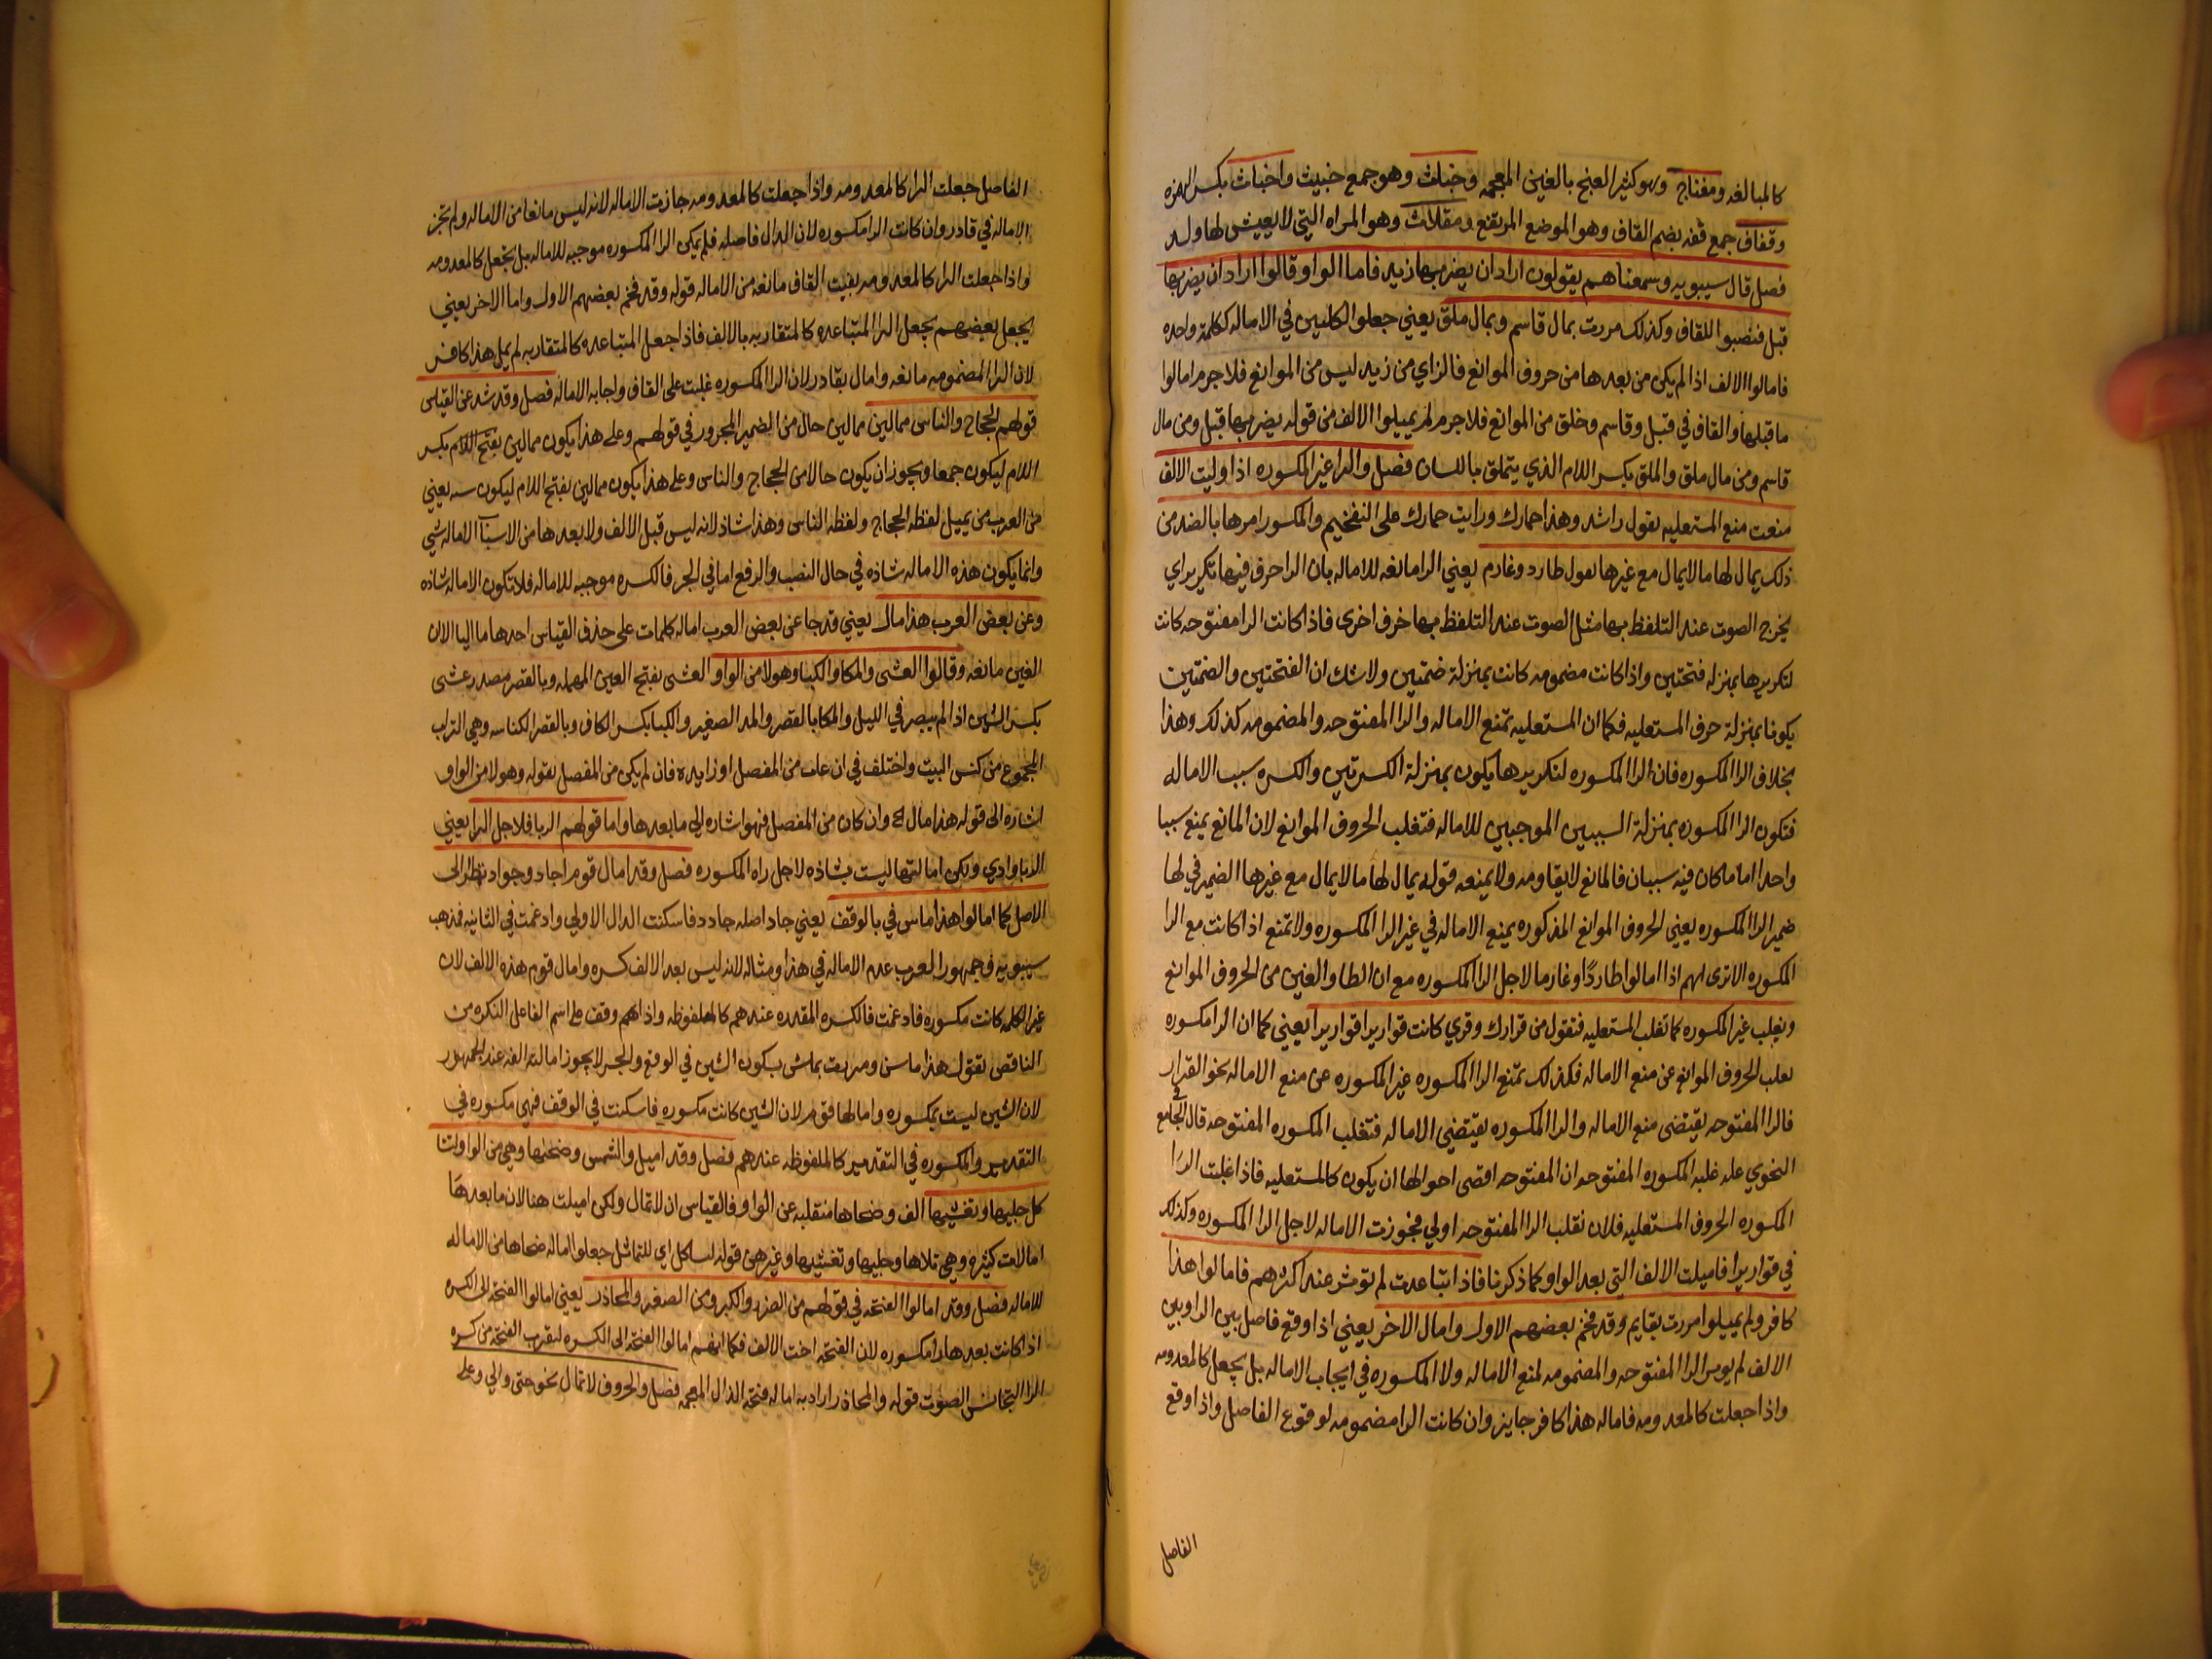 كالمبالغه ومغناج وهو كثير الغنج بالغين المعجمه وخباث وهو جمع خبيث واخباث بكسر الهمزه
وقفاف جمع قفه بضم القاف وهو الموضع المرتفع ومقلات وهو المراه التي لا يعيش لها ولد
فصل قال سيبويه وسمعناهم يقولون اراد ان يضربها زيد فامالوا وقالوا اراد ان يضربها
قبل فنصبوا للقاف وكذلك مررت بمال قاسم وبمال ملق يعني جعلوا الكلمتين في الاماله ككلمة واحده
فامالوا الالف اذا لم يكن من بعدها من حروف الموانع فالزاي من زيد ليس من الموانع فلا جرم امالوا
ما قبلها والقاف في قبل وقاسم وخلق من الموانع فلا جرم لم يميلوا الالف من قوله يضربها قبل ومن مال
قاسم ومن مال ملق والملق بكسر اللام الذي يتملق باللسان فصل والرا غير المكسوره اذا وليت الالف
منعت منع المستعليه تقول راشد وهذا حمارك ورايت حمارك على التفخيم والمكسور امرها بالضد من
ذلك يمال لها ما لا يمال مع غيرها تقول طارد وغارم يعني الرا مانعه للاماله بان الرا حرف فيها تكرير اي
يخرج الصوت عند التلفظ بها مثل الصوت عند التلفظ بها حرف اخرى فاذا كانت الرا مفتوحه كانت
لتكريرها بمنزله فتحتين واذا كانت مضمومه كانت بمنزلة ضمتين ولا شك ان الفتحتين والضمتين
يكونا بمنزلة حرف المستعليه فكما ان المستعليه تمنع الاماله والرا المفتوحه والمضمومه كذلك وهذا
بخلاف الرا المكسوره فان الرا المكسوره لتكريرها يكون بمنزلة الكسرتين والكسره سبب الاماله
فتكون الرا المكسوره بمنزلة السببين الموجبين للاماله فتغلب الحروف الموانع لان المانع يمنع سببا
واحدا اما ما كان فيه سببان فالمانع لا يقاومه ولا يمنعه قوله يمال لها ما لا يمال مع غيرها الضمير في لها
ضمير الرا المكسوره يعني الحروف الموانع المذكوره يمنع الاماله في غير الرا المكسوره ولا تمنع اذا كانت مع الرا
المكسوره الا ترى انهم اذا امالوا طاردًا وغارما لاجل الرا المكسوره مع ان الطا والغين من الحروف الموانع
وتغلب غير المكسوره كما تغلب المستعليه فتقول من قرارك وقري كانت قواريرا قواريرا يعني كما ان الرا مكسوره
تغلب الحروف الموانع عن منع الاماله فكذلك تمنع الرا المكسوره غير المكسوره عن منع الاماله نحو القرار
فالرا المفتوحه يقتضى منع الاماله والرا المكسوره يقتضي الاماله فتغلب المكسوره المفتوحه قال في الجامع
النحوي عله غلبه المكسوره المفتوحه ان المفتوحه اقصى احوالها ان يكون كالمستعليه فاذا غلبت الرا
المكسوره الحروف المستعليه فلان تغلب الرا المفتوحه اولي فجوزت الاماله لاجل الرا المكسوره وكذلك
في قواريرا فاميلت الالف التي بعد الواو كما ذكرنا فاذا تباعدت لم توثر عند اكثرهم فامالوا هذا
كافر ولم يميلوا مررت بقادر وقد فخم بعضهم الاول وامال الاخر يعني اذا وقع فاصل بين الرا وبين
الالف لم يوثر الرا المفتوحه والمضمومه لمنع الاماله ولا المكسوره في ايجاب الاماله بل يجعل كالمعدومه
واذا جعلت كالمعدومه فاماله هذا كافر جايز وان كانت الرا مضمومه لوقوع الفاصل واذا وقع
الفاصل
الفاصل جعلت الرا كالمعدومه واذا جعلت كالمعدومه جازت الاماله لانه ليس مانعا من الاماله ولم تجز
الاماله في قادر وان كانت الرا مكسوره لان الدال فاصله فلم يكن الرا المكسوره موجبه للاماله بل يجعل كالمعدومه
واذا جعلت الرا كالمعدومه بقيت القاف مانعه من الاماله قوله وقد فخم بعضهم الاول واما الاخر يعني
يجعل بعضهم يجعل الرا المتباعده كالمتقاربه بالالف فاذا جعل المتباعده كالمتقاربه لم يمل هذا كافر
لان الرا المضمومه مانعه وامال بقادر لان الرا المكسوره غلبت على القاف واجابه الاماله فصل وقد شذ عن القياس
قولهم الحجاج والناس ممالين ممالين حال من الضمير المجرور في قولهم وعلى هذا يكون ممالين بفتح اللام بكسر
اللام ليكون جمعا ويجوز ان يكون حالا من الحجاج والناس وعلى هذا يكون ممالين بفتح اللام ليكون يعني
من العرب من يميل لفظه الحجاج ولفظه الناس وهذا شاذ لانه ليس قبل الالف ولا بعدها من الاسباب الاماله شي
وانما يكون هذه الاماله شاذه في حال النصب والرفع اما في الجر فالكسره موجبه للاماله فلا تكون الاماله شاذه
وعن بعض العرب هذا مال يعني قد جا عن بعض العرب اماله كلمات على حذف القياس احدها ما اليا الان
الغين مانعه وقالوا العشى والمكا والكبا وهولا من الواو العشى بفتح العين المهمله وبالقصر مصدر عشى
بكسر الشين اذا لم يبصر في الليل والمكا بالقصر والمد الصغير والكبا بكسر الكاف وبالقصر الكناسه وهي التراب
المجموع من كنس البيت واختلف في ان من المفصل او زايده فان لم يكن من المفصل بقوله وهولا من الواو
اشاره الى قوله هذا مال وان كان من المفصل فهو اشاره الى ما بعدها واما قولهم الربا فلاجل الرا يعني
الربا واوي ولكن امالتها ليست بشاذه لاجل راه المكسوره فصل وقد امال قوم اجاد وجواد نظرا الى
الاصل كما امالوا هذا ماس في بالوقف يعني جاد اصله جادد فاسكنت الدال الاولي وادغمت في الثانيه فمذهب
سيبويه وجمهور العرب عدم الاماله في هذا ومثاله لانه ليس بعد الالف كسره وامال قوم هذه الالف لان
غير الكلمه كانت مكسوره فادغمت فالكسره المقدره عندهم كالملفوظه واذا هم وقف على اسم الفاعل النكره من
الناقص تقول هذا ماس ومررت بماش بكون الشين في الوقع والجر لا يجوز امالته الفه عند الجمهور
لان الشين ليست بمكسوره وامالها قوم لان الشين كانت مكسوره فاسكنت في الوقف فهي مكسوره في
التقدير والمكسوره في التقدير كالملفوظه عندهم فصل وقد اميل والشمس وضحها وهي من الواو لتشا
كل جليها وتغشيها الف وضحاها منقلبه عن الواو فالقياس ان لا تمال ولكن اميلت هنا لان ما بعدها
امالات كثيره وهي تلاها وجليها وتغشيها وغيرهن قوله لساكل اي للتماثل جعلوا اماله ضحاها من الاماله
للاماله فصل وقد امالوا الفتحه في قولهم من الضرر والكبر ومن الصغر والمحاذر يعني امالوا الفتحه الى الكسره
اذا كانت بعدها را مكسوره لان الفتحه اخت الالف فكما انهم امالوا الفتحه الى الكسره لتقرب الفتحه من كسره
الرا التجانس الصوت قوله والمحاذر اراد به اماله فتحه الذال المعجمه فصل والحروف لا تمال نحو حتى والي وعلى